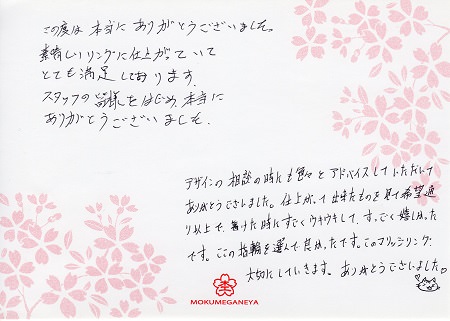 この度は本当にありがとうございました。
素晴しいリングに仕上がっていて
とても満足しております。
スタッフの皆様をはじめ、本当に
ありがとうございました。
デザインの相談の時にも色々とアドバイスしていただいて
ありがとうございました。仕上がって出来たものを見て希望通
り以上で、着けた時にすごくウキウキして、すっごく嬉しかった
です。ここの指輪を選んで良かったです。このマリッジリング
大切にしていきます。ありがとうございました
MOKUMEGANEYA